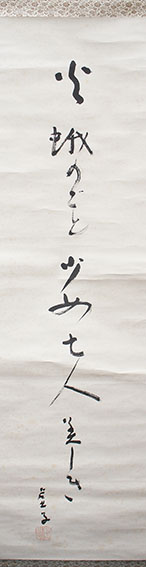 火蛾のごと少女七人美しき